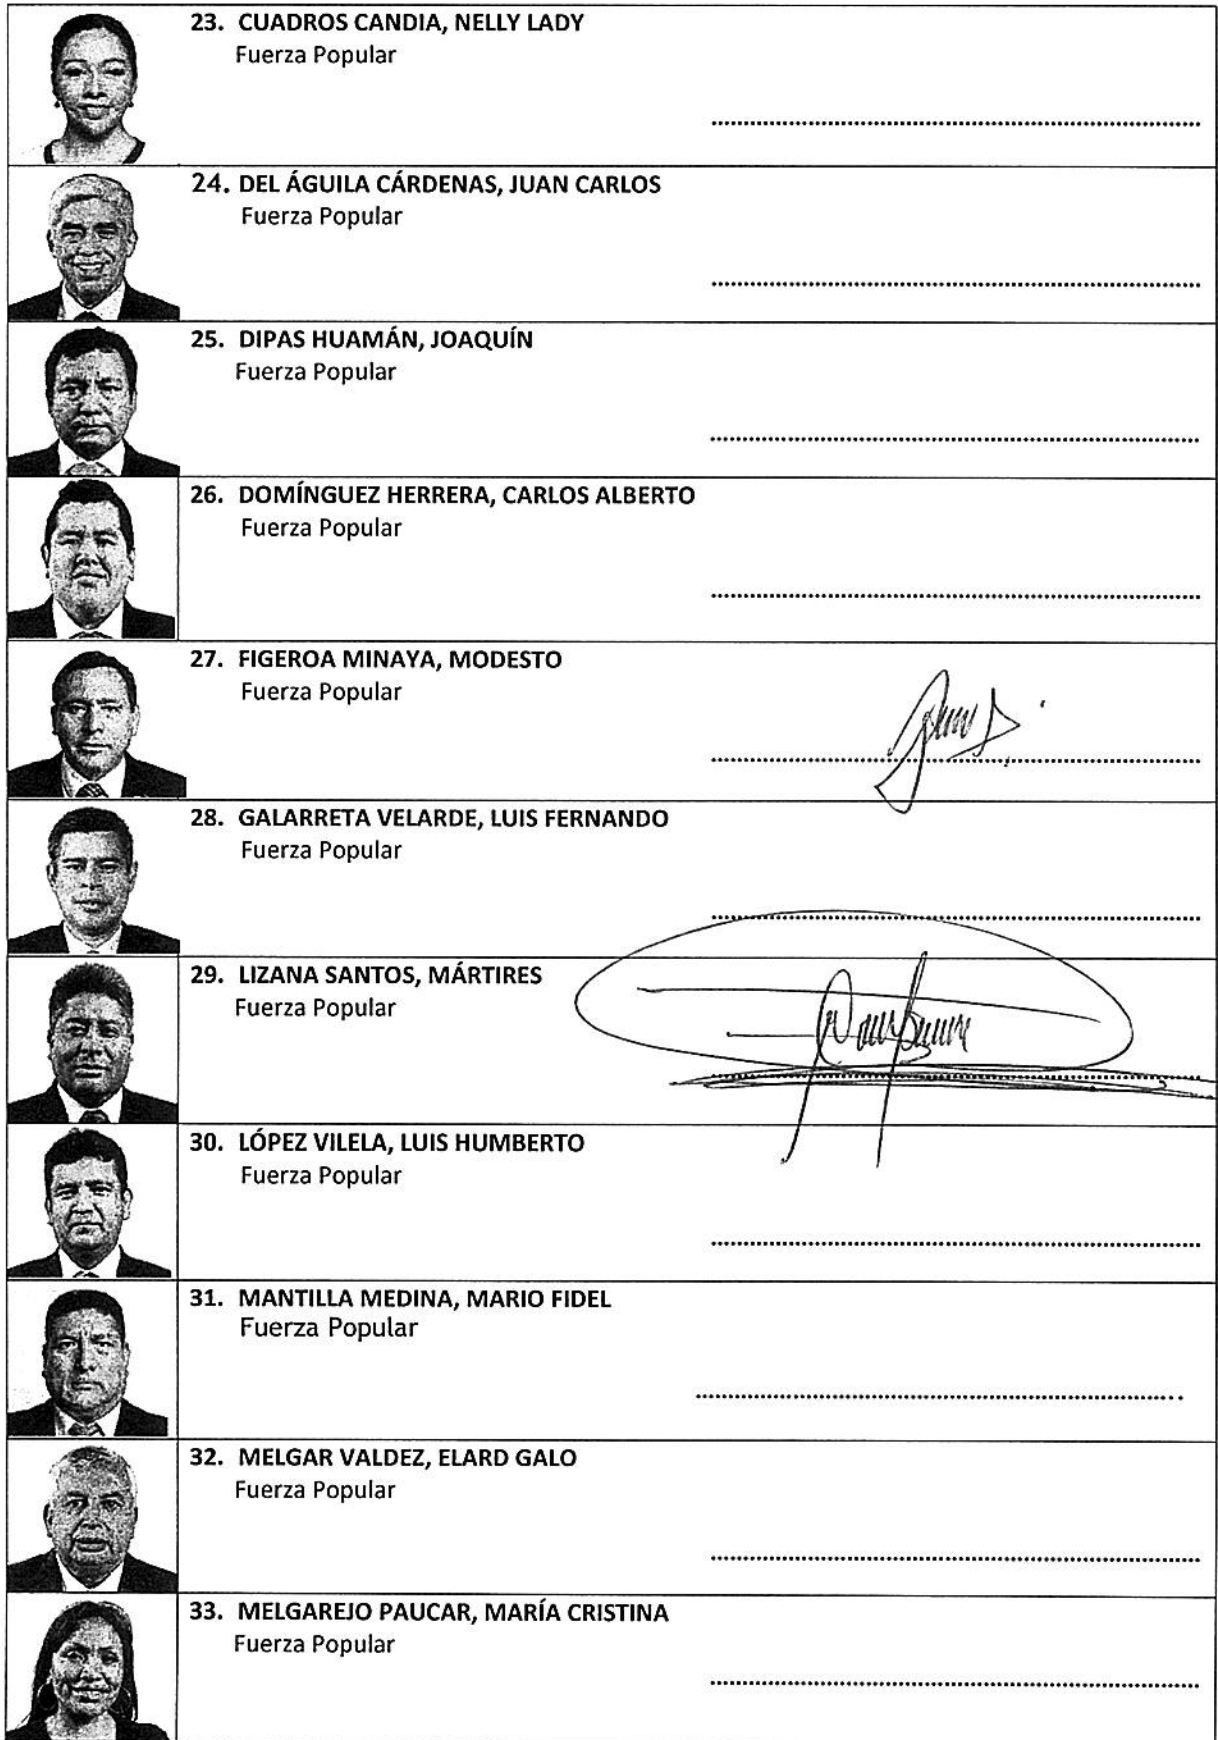 23. CUADROS CANDIA, NELLY LADY
Fuerza Popular
24. DEL ÁGUILA CÁRDENAS, JUAN CARLOS
Fuerza Popular
25. DIPAS HUAMÁN, JOAQUÍN
Fuerza Popular
26. DOMÍNGUEZ HERRERA, CARLOS ALBERTO
Fuerza Popular
27. FIGEROA MINAYA, MODESTO
Fuerza Popular
28. GALARRETA VELARDE, LUIS FERNANDO
Fuerza Popular
29. LIZANA SANTOS, MÁRTIRES
Fuerza Popular
30. LÓPEZ VILELA, LUIS HUMBERTO
Fuerza Popular
31. MANTILLA MEDINA, MARIO FIDEL
Fuerza Popular
32. MELGAR VALDEZ, ELARD GALO
Fuerza Popular
33. MELGAREJO PAUCAR, MARÍA CRISTINA
Fuerza Popular